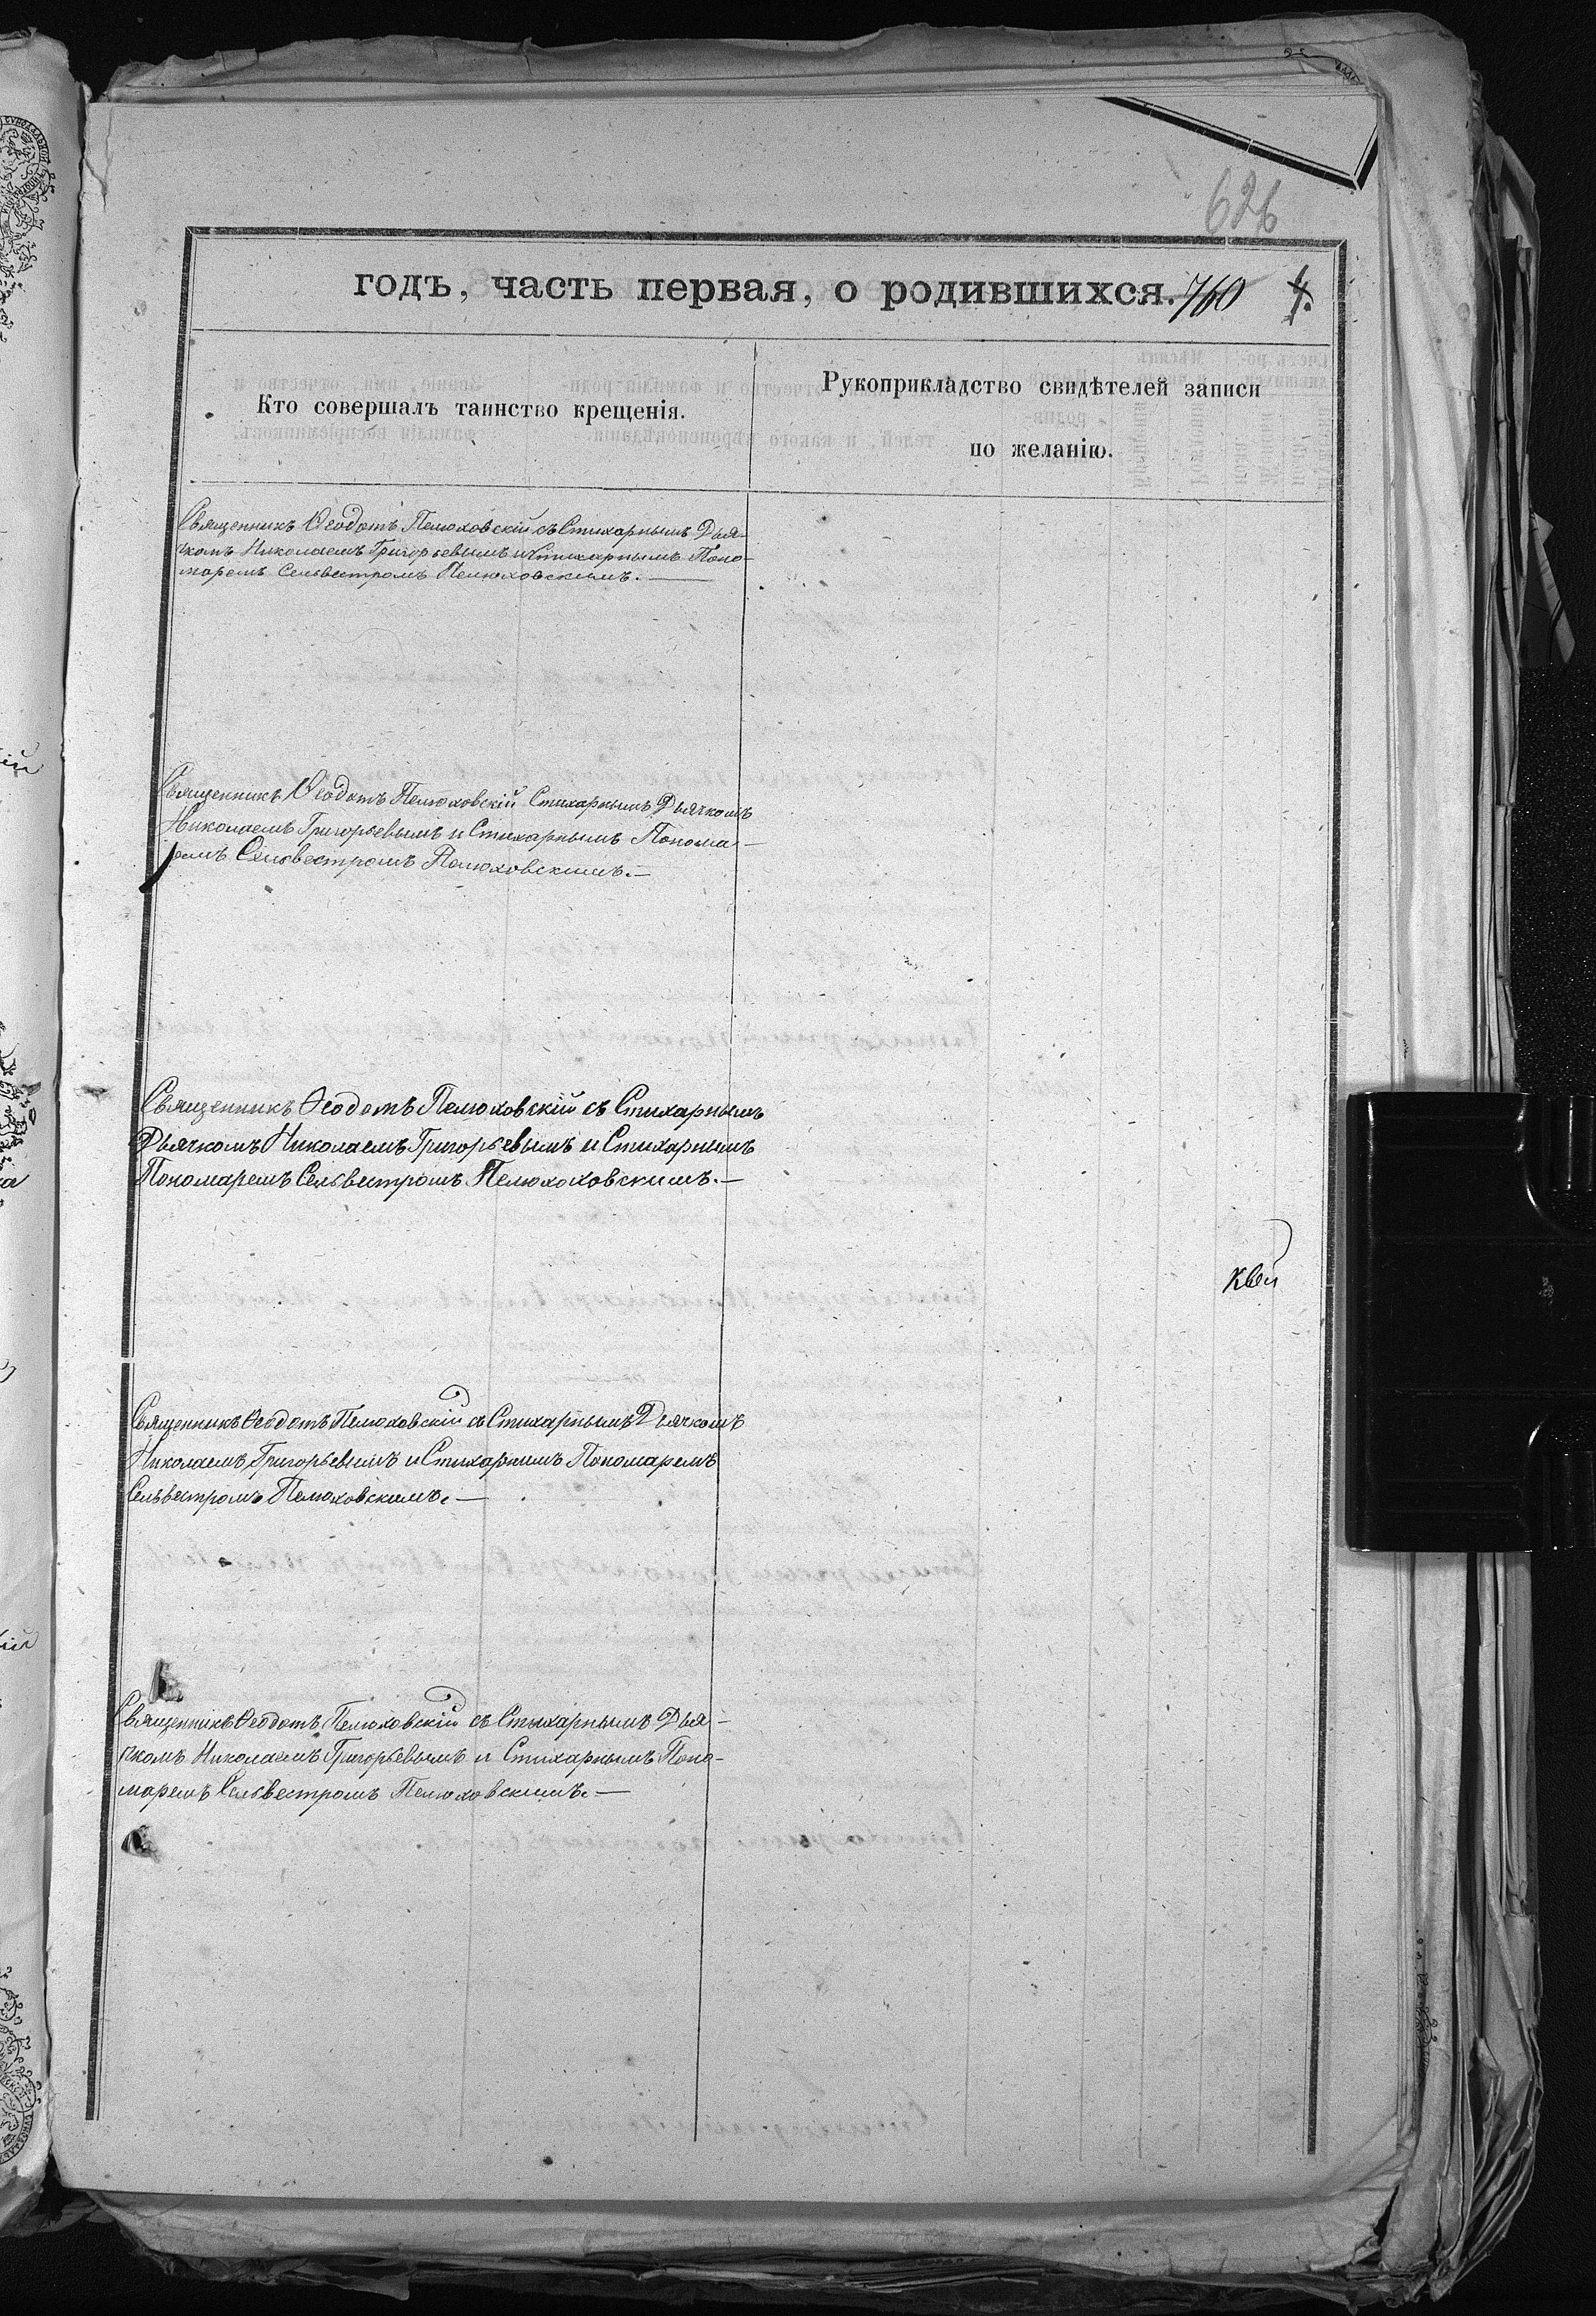 626
годъ, часть первая, о родившихся. 760 4.
Кто совершалъ таинство крещенія.
Рукоприкладство свидѣтелей записи
по желанію.
Священникъ Ѳеодотъ Пелюховскій съ Стихарнымъ Дья-
чкомъ Николаемъ Григорьевымъ и Стихарнымъ Поно-
маремъ Сельвестромъ Пелюховскимъ.—
Священникъ Ѳеодотъ Пелюховскій Стихарнымъ Дьячкомъ
Николаемъ Григорьевымъ и Стихарнымъ Понома-
ремъ Сельвестромъ Пелюховскимъ.—
Священникъ Ѳеодотъ Пелюховскій съ Стихарнымъ
Дьячкомъ Николаемъ Григорьевымъ и Стихарнымъ
Пономаремъ Сельвестромъ Пелюхоховскимъ.—
Священникъ Ѳеодотъ Пелюховскій съ Стихарнымъ Дьячкомъ
Николаемъ Григорьевымъ и Стихарнымъ Пономаремъ
Сельвестромъ Пелюховскимъ.—
Священникъ Ѳеодотъ Пелюховскій съ Стихарнымъ Дья-
чкомъ Николаемъ Григорьевымъ и Стихарнымъ Поно-
маремъ Сельвестромъ Пелюховскимъ.—